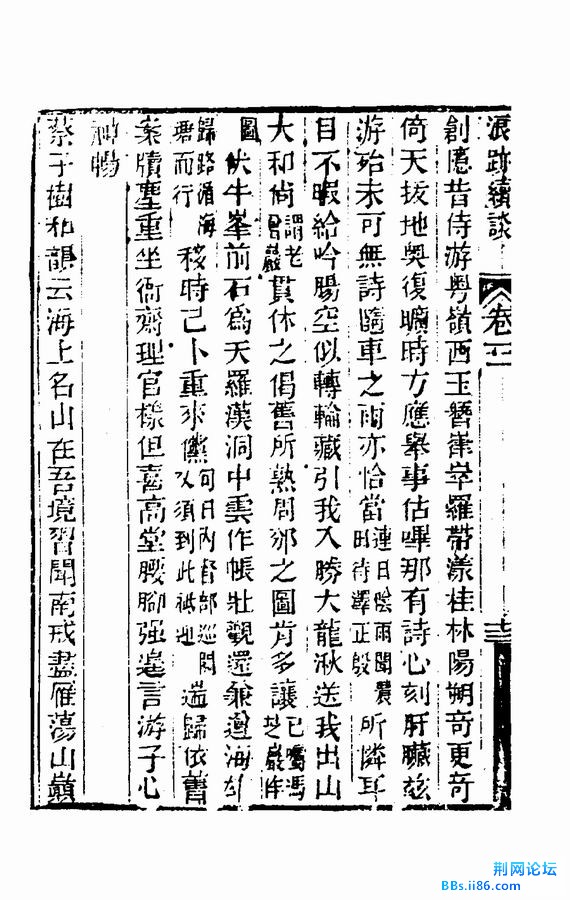 浪跡續談 卷二 十三
創隱昔侍游粵嶺西玉簪嵂崒羅帶漾桂林陽朔奇更奇
倚天拔地奧復曠時方應舉事估嗶那有詩心刻肝臟茲
游殆未可無詩隨車之雨亦恰當連日陰雨聞農田待澤正殷所憐耳
目不暇給吟腸空似轉輪藏引我入勝大龍湫送我出山
大和尚謂老曇巖貫休之偈舊所熟問邠之圖肯多讓已囑馮芝巖作
圖伏牛峯前石爲天羅漢洞中雲作帳壯觀還兼遵海
歸路循海塘而行移時已卜重來儻旬日內督部巡閱又須到此祗迎遄歸依舊
案牘塵重坐衙齋理官樣但喜高堂腰腳强遑言游子心
神暢
蔡子樹和韻云海上名山在吾境習聞南戒盡雁蕩山巔
荆网论坛
BBs.ii86.com